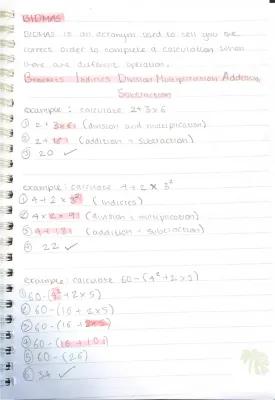 BIDMAS
BIDMAS is an acronym used to tell you the
correct order to complete a calculation when
there are different operation.
Brackets Indices Division Multiplication Addition
Subtraction
example: calculate 2+3×6
① 2+3×6 (division and multiplication)
② 2+18 (addition + subtraction)
③ 20 ✓
example: calculate 4+2×3²
① 4+2×3² (indices)
② 4+2×9 (division + multiplication)
③ 4+18 (addition + subtraction)
④ 22 ✓
example: calculate 60-(4²+2×5)
① 60-(4²+2×5)
② 60-(16+2×5)
③ 60-(16+2×5)
④ 60-(16+10)
⑤ 60-(26)
⑥ 34 ✓